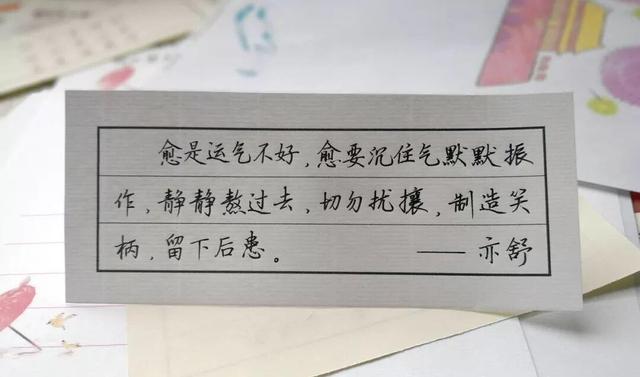 愈是运气不好，愈要沉住气默默振
作，静静熬过去，切勿扰攘，制造笑
柄，留下后患。 —— 亦舒